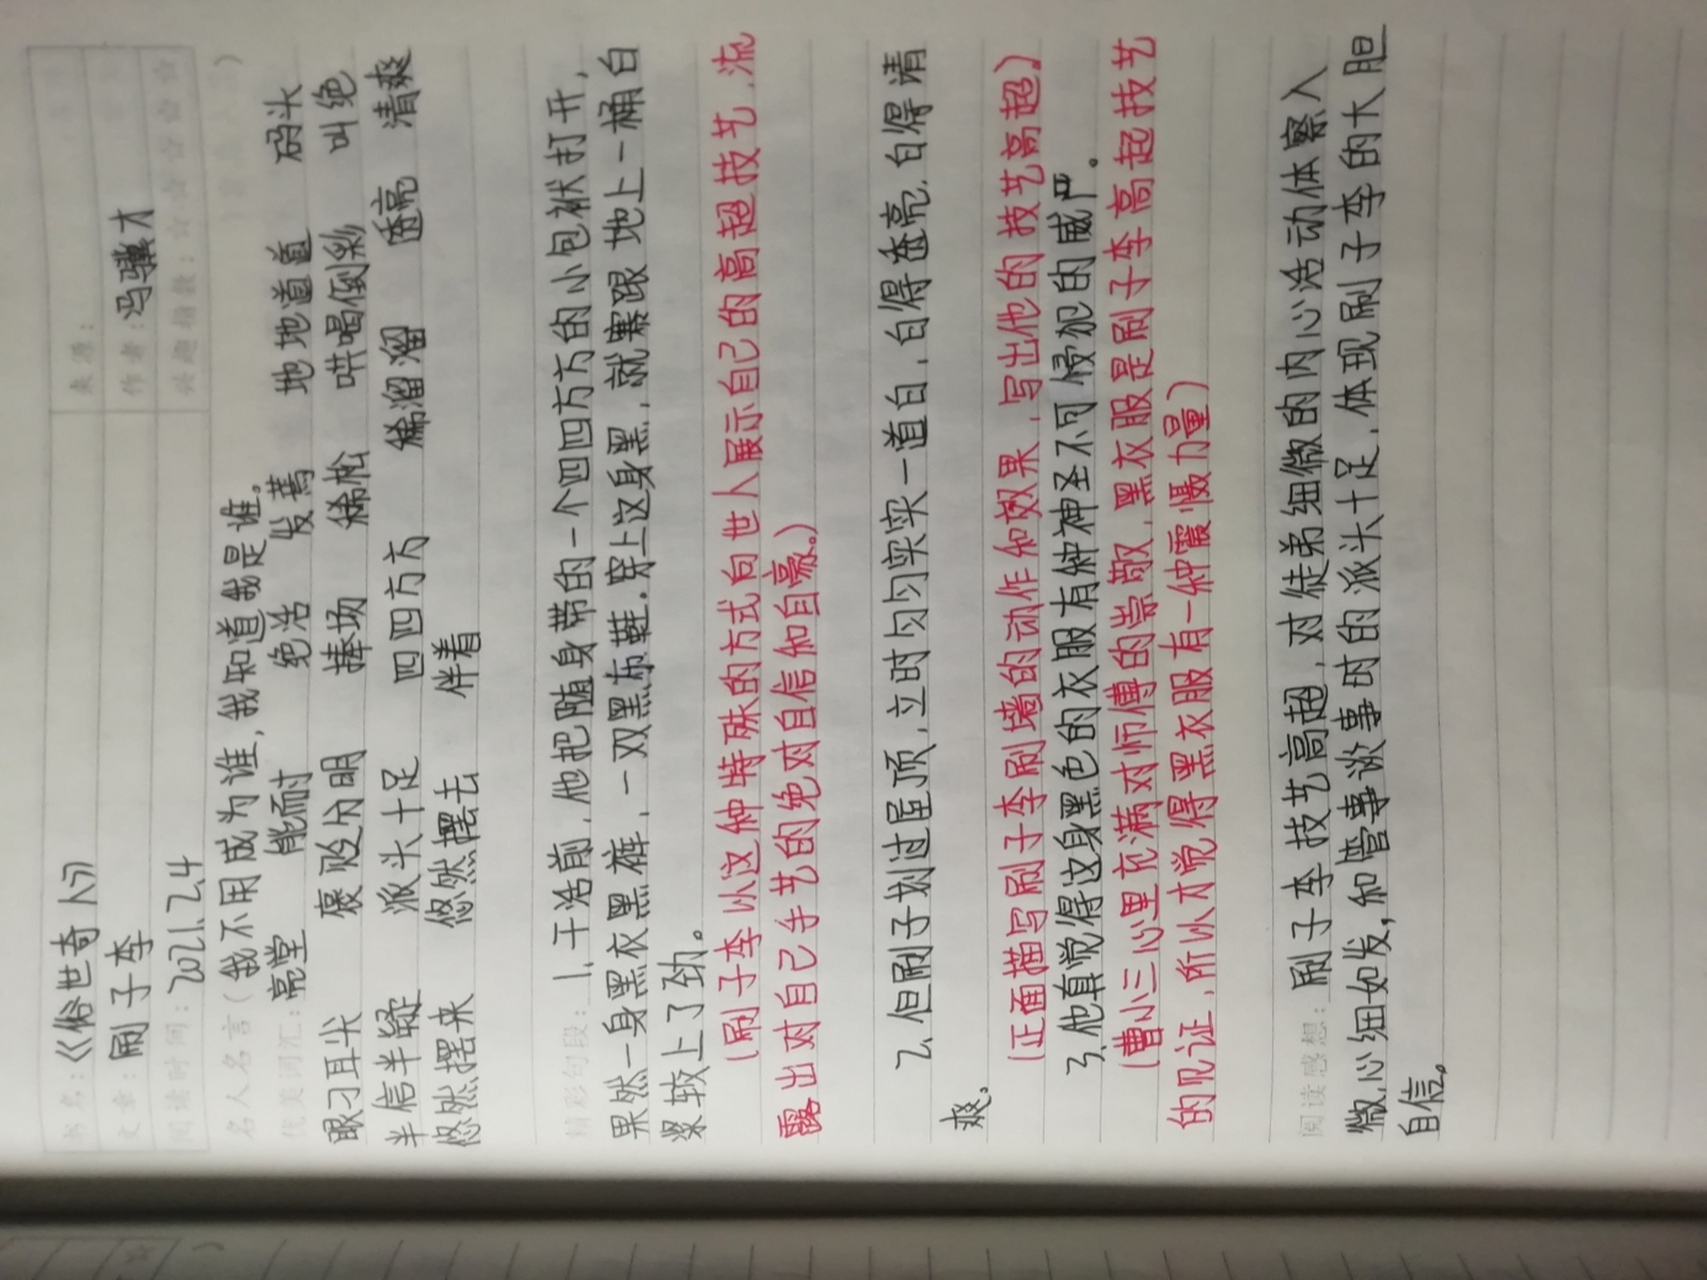 书名：《俗世奇人》 来源：
文章：刷子李 作者：冯骥才
阅读时间：2021.2.4 兴趣指数：☆☆☆☆☆
名人名言（我不用成为谁，我知道我是谁。）
优美词汇：亮堂 能耐 绝活 发蔫 地地道道 码头
眼刁耳尖 褒贬分明 捧场 稀松 哄喝倒彩 叫绝
半信半疑 派头十足 四四方方 稀溜溜 透亮 清爽
悠然摆来 悠然摆去 伴着
精彩句段：1、干活前，他把随身带的一个四四方方的小包袱打开，
果然一身黑衣黑裤，一双黑布鞋。穿上这身黑，就赛跟地上一桶白
浆较上了劲。
（刷子李以这种特殊的方式向世人展示自己的高超技艺，流
露出对自己手艺的绝对自信和自豪。）
2、但刷子划过屋顶，立时匀匀实实一道白，白得透亮，白得清
爽。
（正面描写刷子李刷墙的动作和效果，写出他的技艺高超）
3、他真觉得这身黑色的衣服有种神圣不可侵犯的威严。
（曹小三心里充满对师傅的崇敬，黑衣服是刷子李高起技艺
的见证，所以才觉得黑衣服有一种震慑力量）
阅读感想：刷子李技艺高超，对徒弟细微的内心活动体察入
微，心细如发，和管事谈事时的派头十足，体现刷子李的大胆
自信。